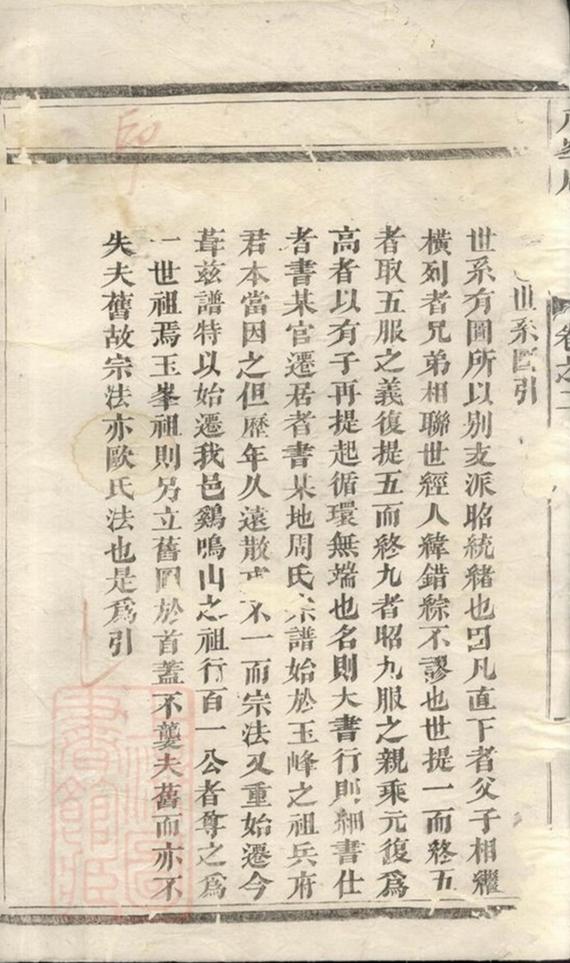 卷之二
世系圖引
世系有圖所以別支派昭統緒也圖凡直下者父子相繼
橫列者兄弟相聯世經人緯錯綜不謬也世提一而終五
者取五服之義復提五而終九者昭九服之親乘元復爲
高者以有子再提起循環無端也名則大書行則細書仕
者書某官遷居者書某地周氏宗譜始於玉峰之祖兵府
君本當因之但歷年久遠散 不一而宗法又重始遷今
葺茲譜特以始遷我邑鷄鳴山之祖行百一公者尊之爲
一世祖焉玉峯祖則另立舊圖於首蓋不襲夫舊而亦不
失夫舊故宗法亦歐氏法也是爲引
印
書館